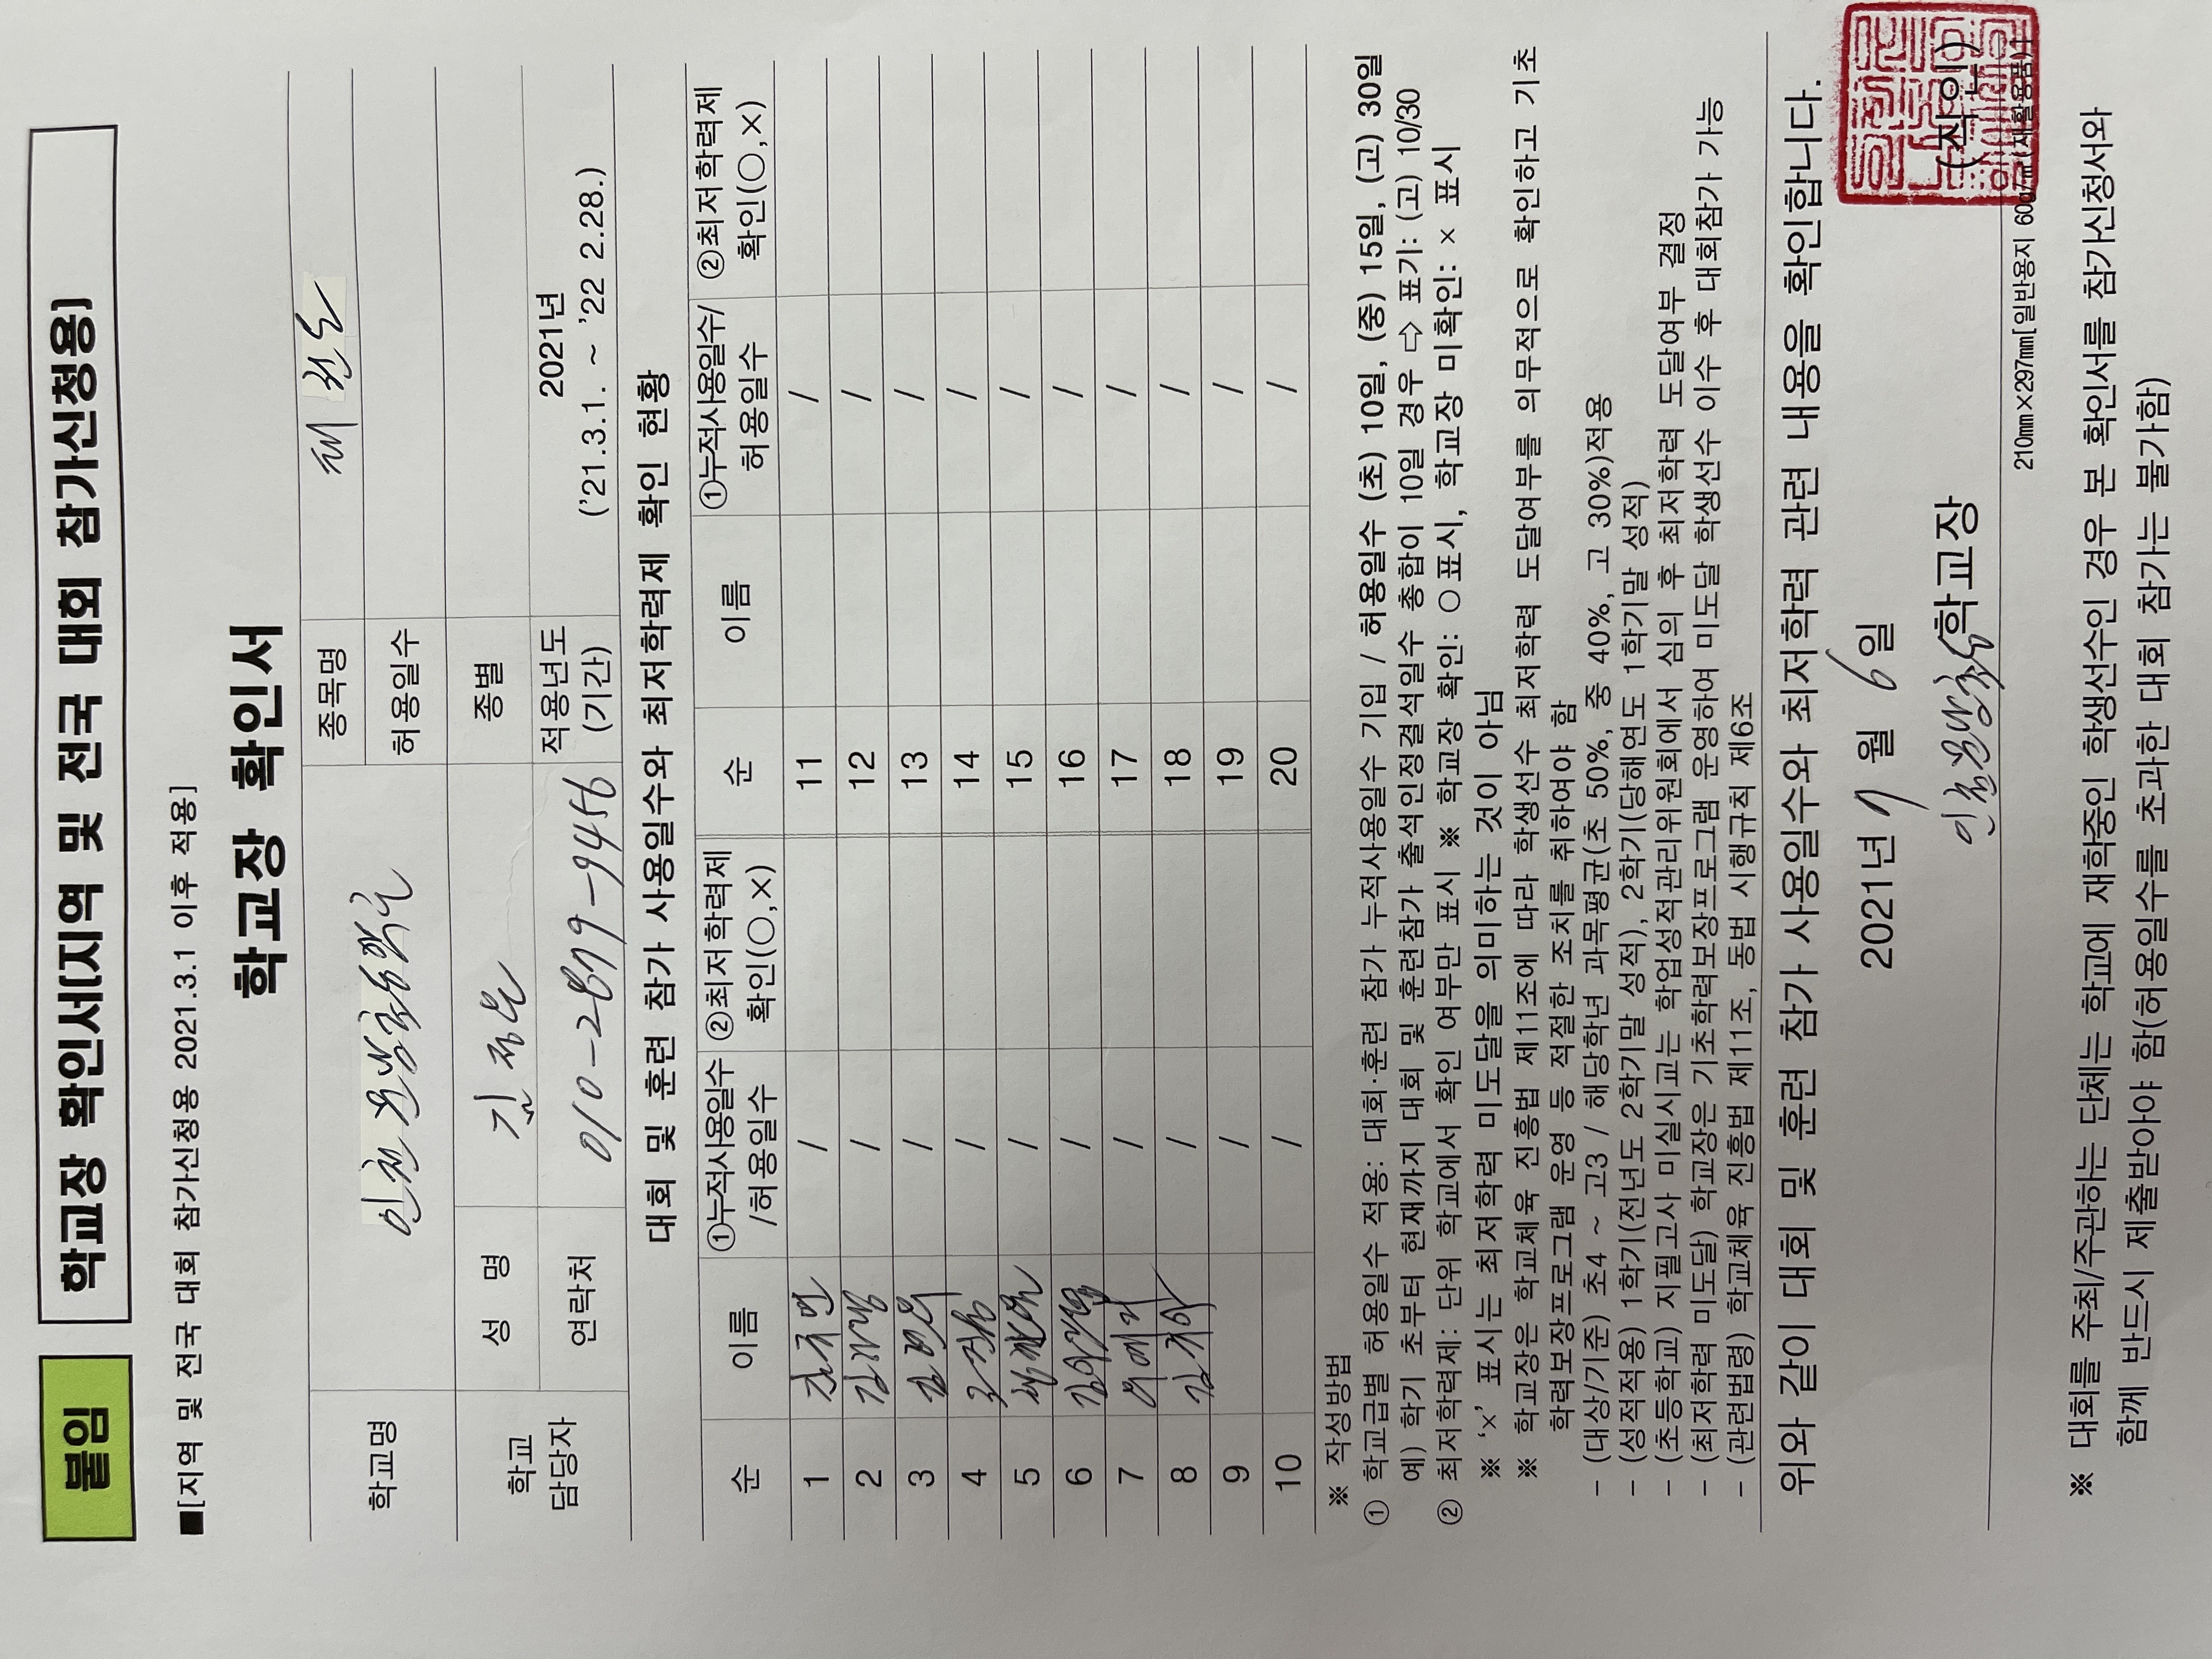 붙임
학교장 확인서[지역 및 전국 대회 참가신청용]
■[지역 및 전국 대회 참가신청용 2021.3.1 이후 적용]
학교장 확인서
학교명 종목명 태권도
허용일수
학교 담당자 성 명 종별
연락처 010-2879-9456 적용년도 (기간) 2021년 ('21.3.1. ~ '22 2.28.)
대회 및 훈련 참가 사용일수와 최저학력제 확인 현황
순 이름 ①누적사용일수 /허용일수 ②최저학력제 확인(○,×) 순 이름 ①누적사용일수/ 허용일수 ②최저학력제 확인(○,×)
1 / 11 /
2 / 12 /
3 / 13 /
4 / 14 /
5 / 15 /
6 / 16 /
7 / 17 /
8 / 18 /
9 / 19 /
10 / 20 /
※ 작성방법
① 학교급별 허용일수 적용: 대회·훈련 참가 누적사용일수 기입 / 허용일수 (초) 10일, (중) 15일, (고) 30일
예) 학기 초부터 현재까지 대회 및 훈련참가 출석인정결석일수 총합이 10일 경우 ⇨ 표기: (고) 10/30
② 최저학력제: 단위 학교에서 확인 여부만 표시 ※ 학교장 확인: ○ 표시, 학교장 미확인: × 표시
※ '×' 표시는 최저학력 미도달을 의미하는 것이 아님
※ 학교장은 학교체육 진흥법 제11조에 따라 학생선수 최저학력 도달여부를 의무적으로 확인하고 기초
학력보장프로그램 운영 등 적절한 조치를 취하여야 함
- (대상/기준) 초4 ~ 고3 / 해당학년 과목평균(초 50%, 중 40%, 고 30%)적용
- (성적적용) 1학기(전년도 2학기말 성적), 2학기(당해연도 1학기말 성적)
- (초등학교) 지필고사 미실시교는 학업성적관리위원회에서 심의 후 최저학력 도달여부 결정
- (최저학력 미도달) 학교장은 기초학력보장프로그램 운영하여 미도달 학생선수 이수 후 대회참가 가능
- (관련법령) 학교체육 진흥법 제11조, 동법 시행규칙 제6조
위와 같이 대회 및 훈련 참가 사용일수와 최저학력 관련 내용을 확인합니다.
2021년 9월 6일
학교장 (직인)
210㎜×297㎜[일반용지 60g/㎡(재활용품)]
※ 대회를 주최/주관하는 단체는 학교에 재학중인 학생선수인 경우 본 확인서를 참가신청서와
함께 반드시 제출받아야 함(허용일수를 초과한 대회 참가는 불가함)